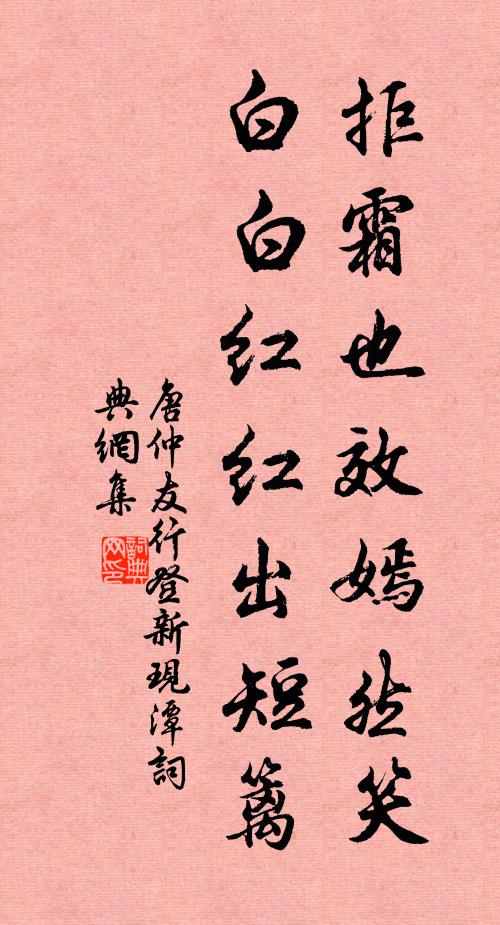 拒霜也效嫣然笑
白白红红出短篱
唐仲友行登新現潭詞
典網集
詞典网印